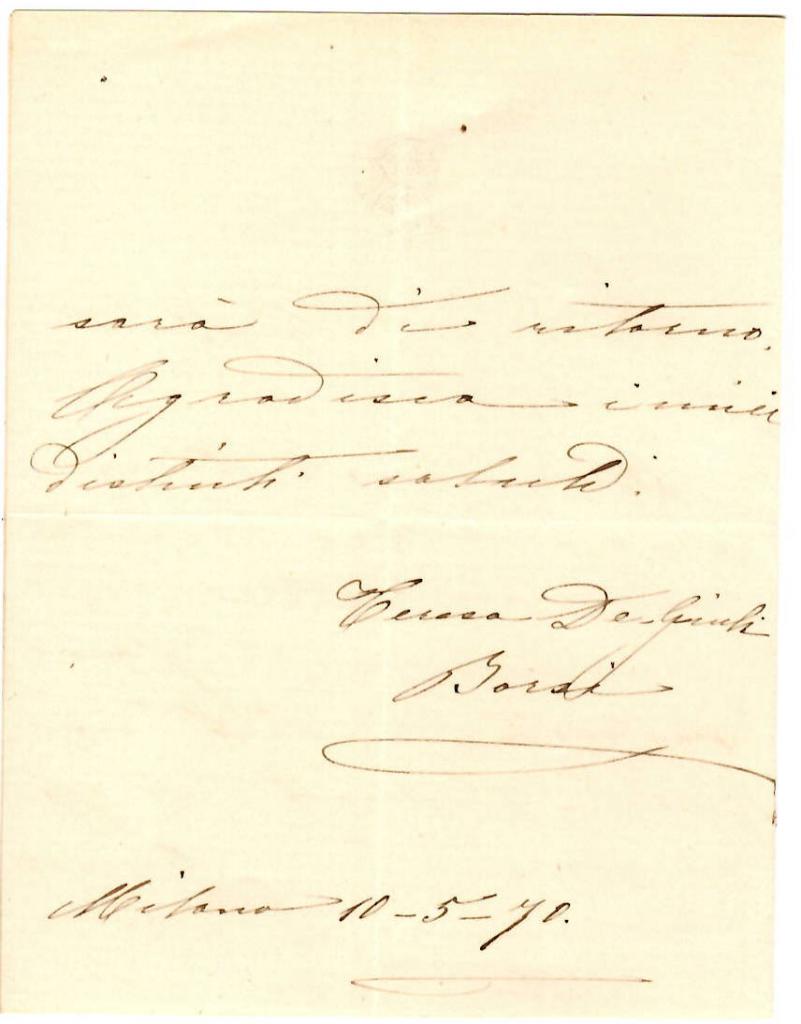 sarà di ritorno.
Aggradisca i miei
distinti saluti.
Teresa De-Giuli
Borsi
Milano 10-5-70.